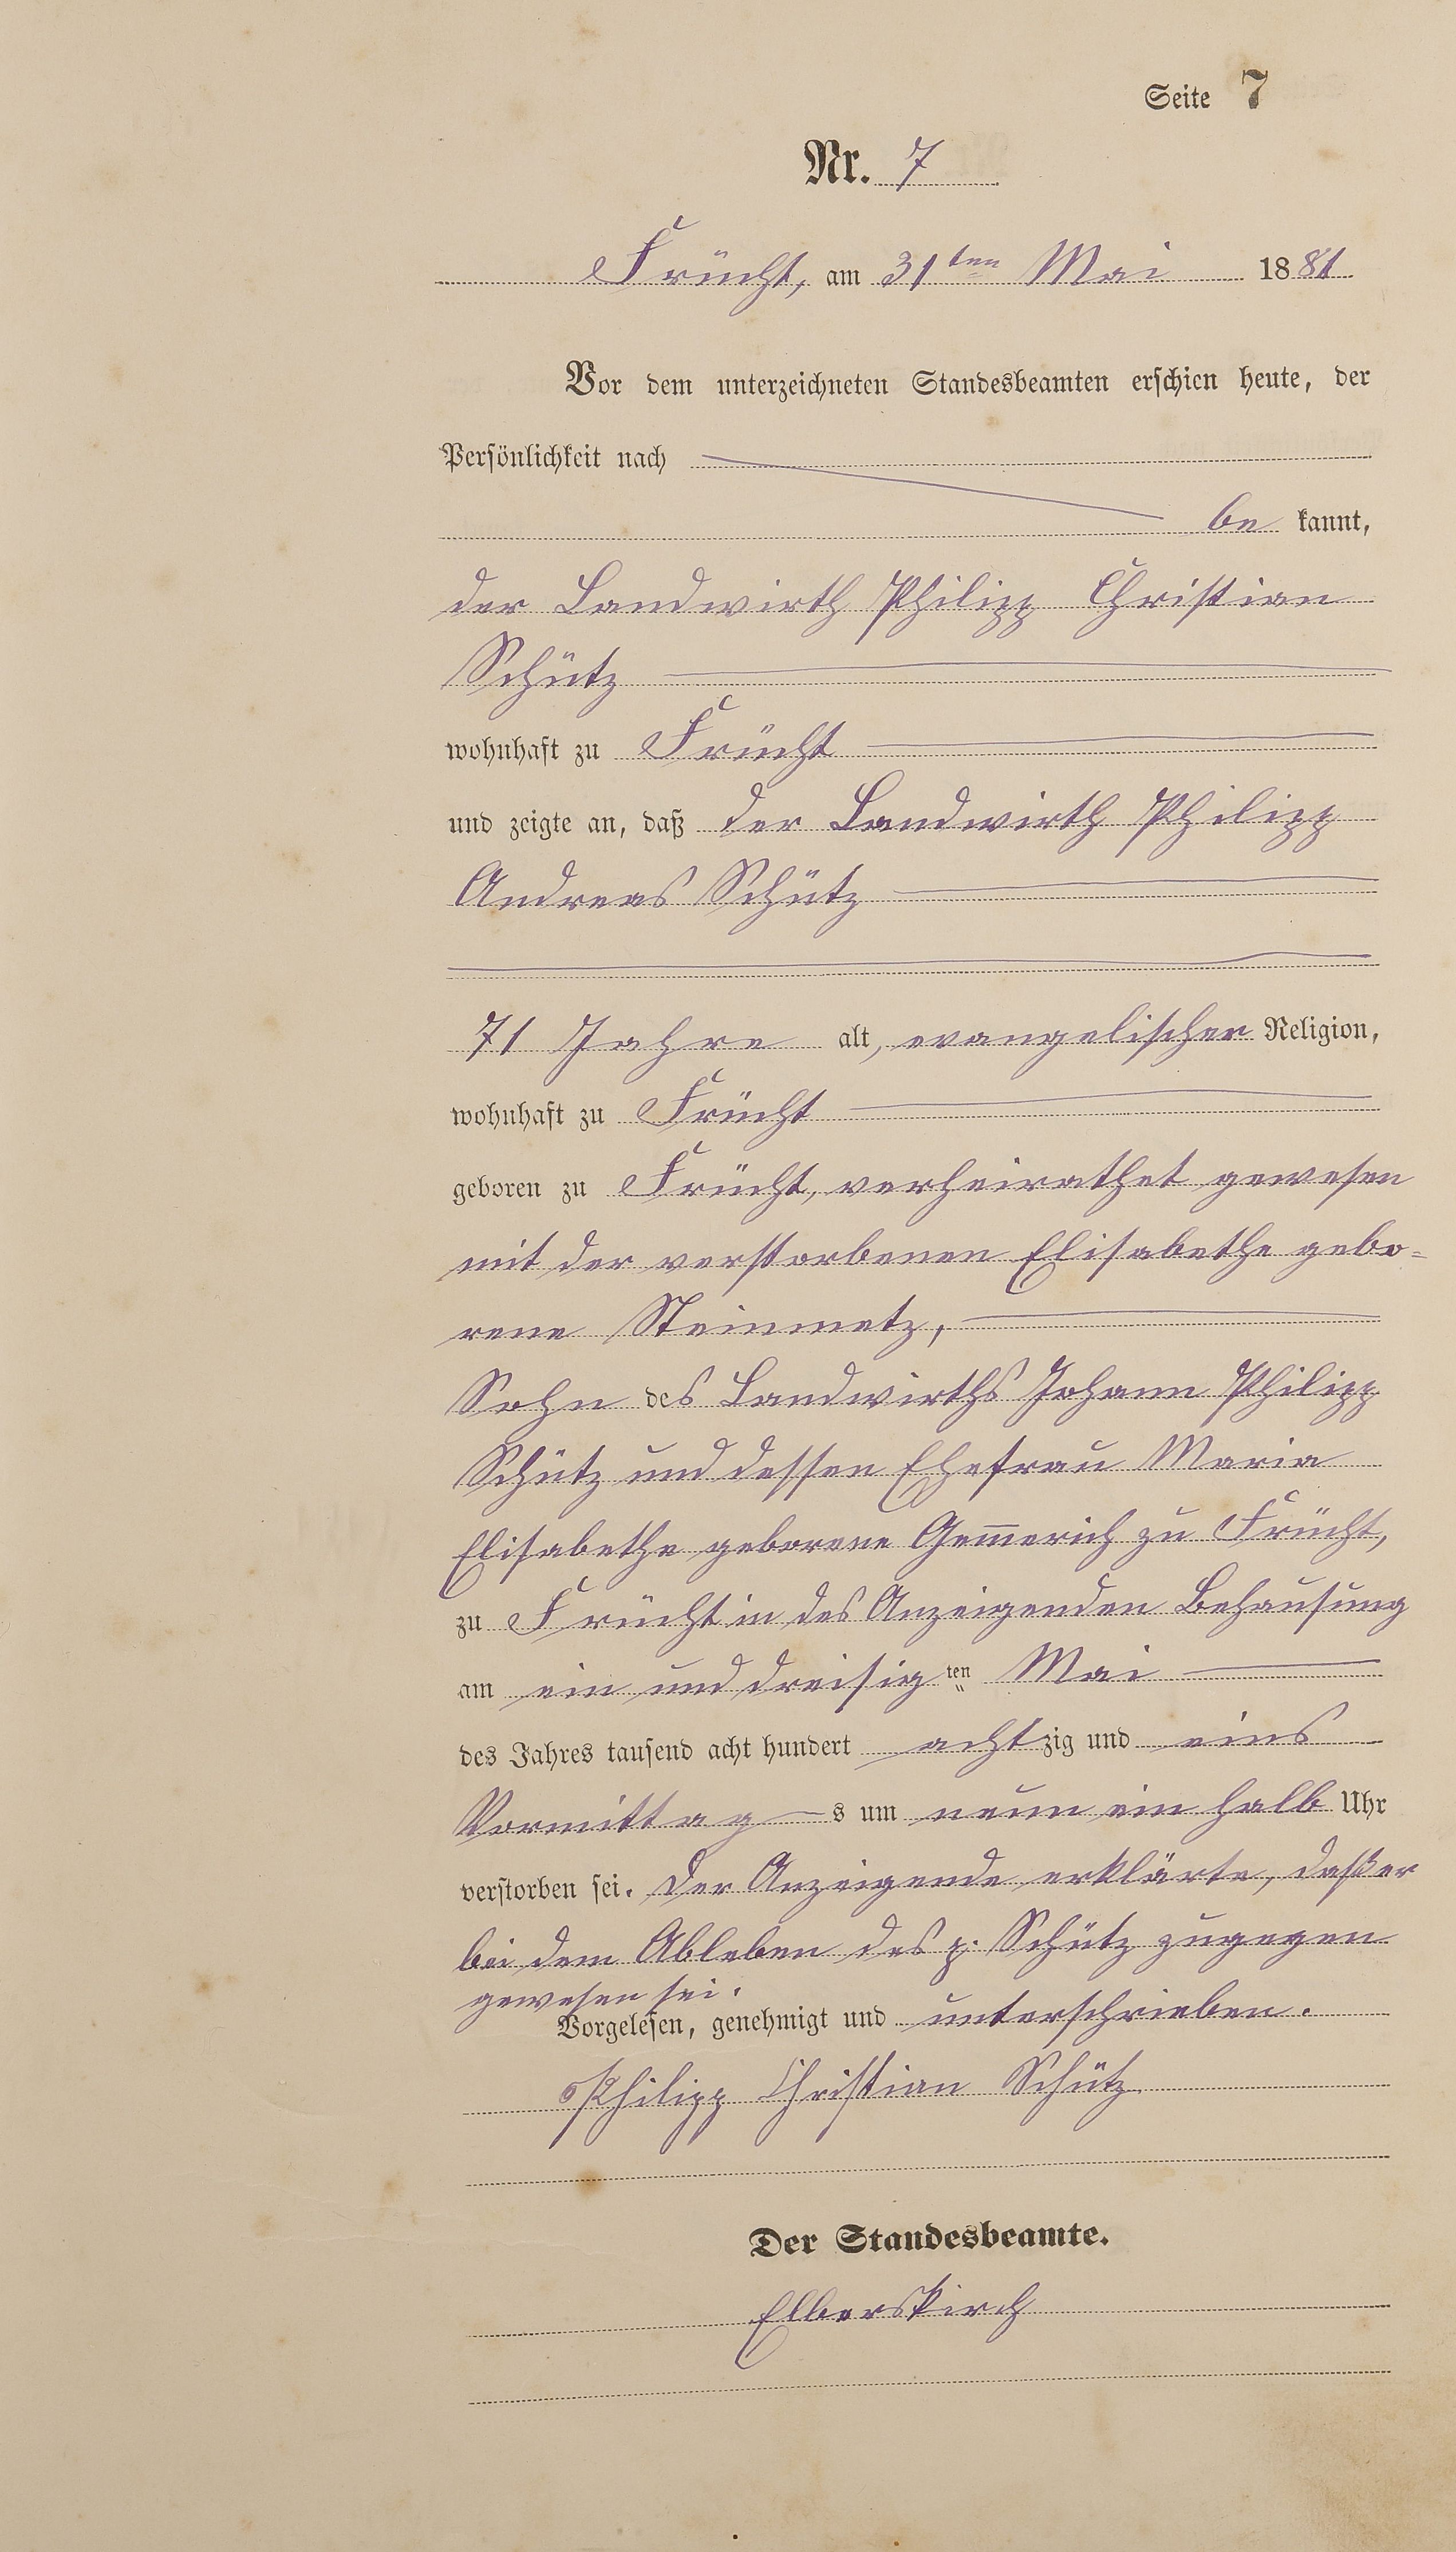 Seite 7
Nr. 7
Frücht, am 31ten Mai 1881
Vor dem unterzeichneten Standesbeamten erschien heute, der
Persönlichkeit nach
be kannt,
der Landwirth Philipp Christian
Schütz
wohnhaft zu Frücht
und zeigte an, daß der Landwirth Philipp
Andreas Schütz
71 Jahre alt, evangelischer Religion,
wohnhaft zu Frücht
geboren zu Frücht, verheirathet gewesen
mit der verstorbenen Elisabethe gebo=
rene Steinmetz,
Sohn des Landwirths Johann Philipp
Schütz und dessen Ehefrau Maria
Elisabethe geborene Gem̅erich zu Frücht,
zu Frücht in des Anzeigenden Behausung
am ein und dreisig ten Mai
des Jahres tausend acht hundert achtzig und eins
Vormittag s um neun ein halb Uhr
verstorben sei. Der Anzeigende erklärte, daß er
bei dem Ableben des p. Schütz zugegen
gewesen sei.
Vorgelesen, genehmigt und unterschrieben.
Philipp Christian Schütz
Der Standesbeamte.
Elberskirch